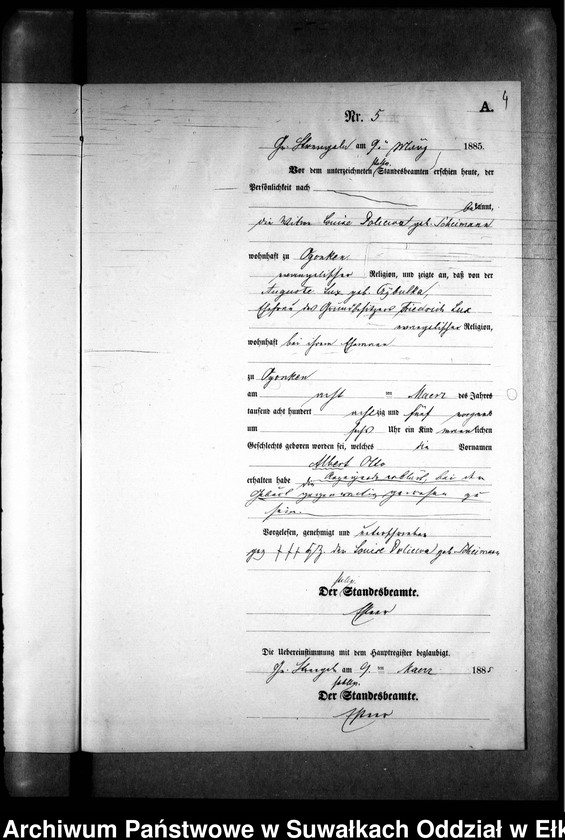 4
A.
Nr. 5
Gr. Strengeln am 9ten März 1885.
Vor dem unterzeichneten Standesbeamten erschien heute, der
Persönlichkeit nach
bekannt,
die Witwe Louise geb.
wohnhaft zu Ogonken
evangelischer Religion, und zeigte an, daß von der
Auguste Lux geb. Cybulka,
Ehefrau des Grundbesitzers Friedrich Lux
evangelischer Religion,
wohnhaft bei ihrem Ehemann
zu Ogonken
am acht ten Maerz des Jahres
tausend acht hundert achtzig und fünf
um sechs Uhr ein Kind maennlichen
Geschlechts geboren worden sei, welches die Vornamen
Albert Otto
erhalten habe die bei der
Geburt gegenwaertig gewesen zu
sein.
Vorgelesen, genehmigt und unterschrieben
gez. +++ der Louise geb.
Der Standesbeamte.
Die Uebereinstimmung mit dem Hauptregister beglaubigt.
am 9 ten Maerz 1885
Der Standesbeamte.
Archiwum Państwowe w Suwałkach Oddział w Ełk